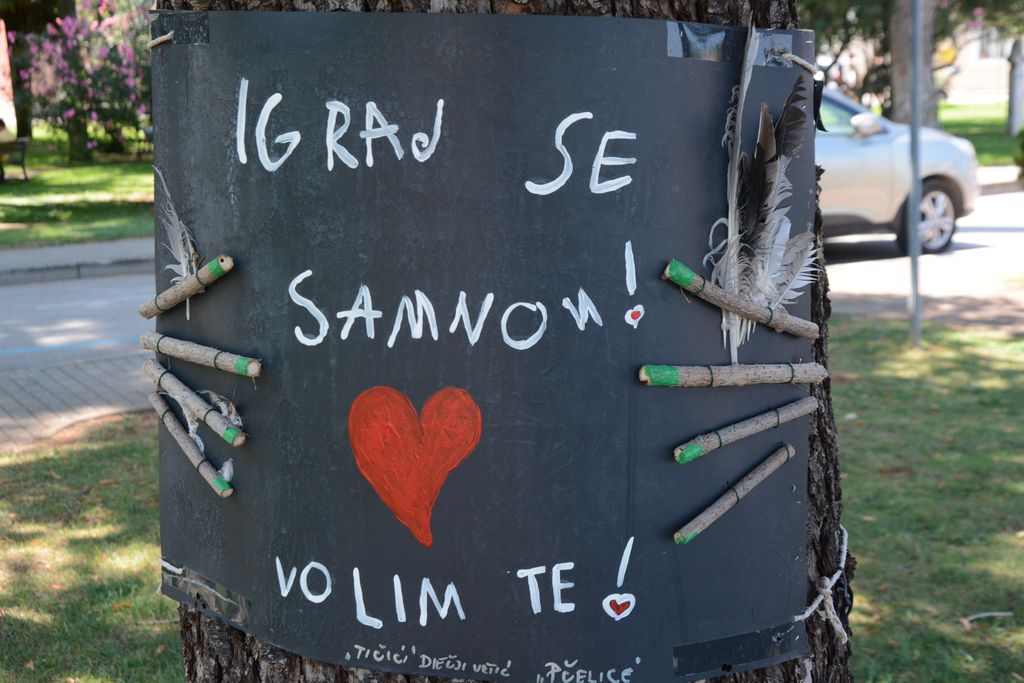 IGRAJ SE
SAMNOM!
VOLIM TE!
„TIČIĆI" DJEČJI VRTIĆ „PČELICE"